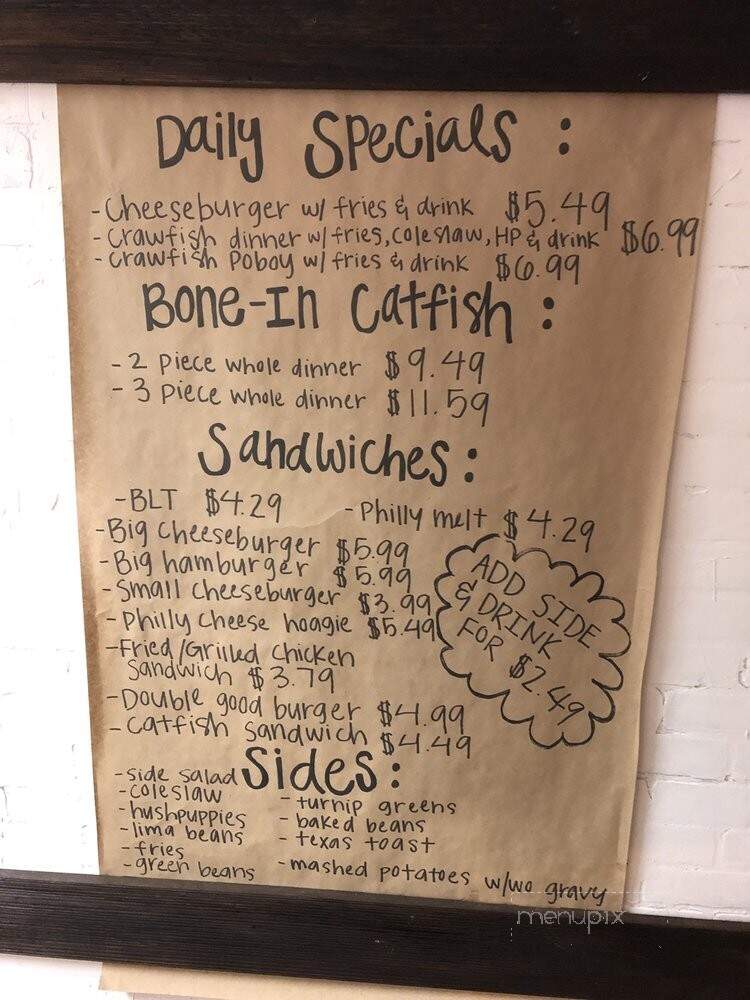 Daily Specials :
-Cheeseburger w/ fries & drink $5.49
-Crawfish dinner w/ fries, coleslaw, HP & drink $6.99
-Crawfish Poboy w/ fries & drink $6.99
Bone-In Catfish :
-2 piece whole dinner $9.49
-3 piece whole dinner $11.59
Sandwiches :
-BLT $4.29
-Philly melt $4.29
-Big Cheeseburger $5.99
-Big hamburger $5.99
-Small Cheeseburger $3.99
-Philly Cheese hoagie $5.49
-Fried/Grilled Chicken
Sandwich $3.79
-Double good burger $4.99
-Catfish Sandwich $4.49
ADD SIDE
& DRINK
FOR $2.49
Sides :
-side salad
-coleslaw
-hushpuppies
-lima beans
-fries
-green beans
-turnip greens
-baked beans
-texas toast
-mashed potatoes w/wo gravy
menupix